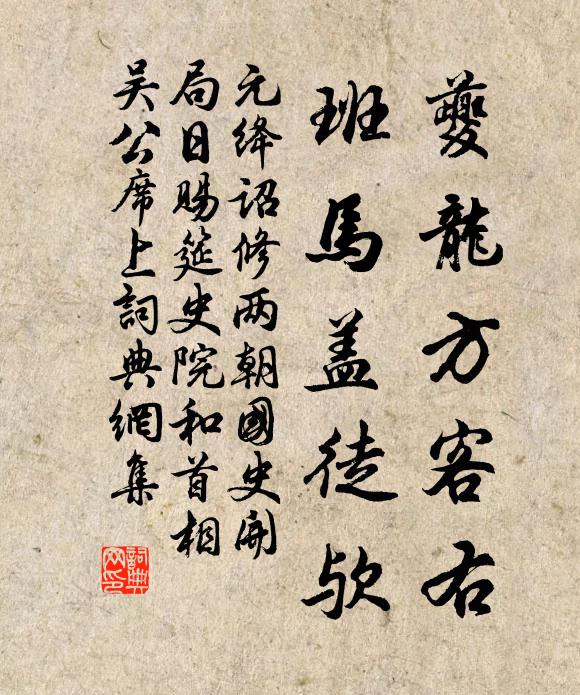 夔龍方客右
班馬盖徒欤
元绛诏修两朝國史開
局日賜筵史院和首相
吴公席上詞典網集
詞典网印